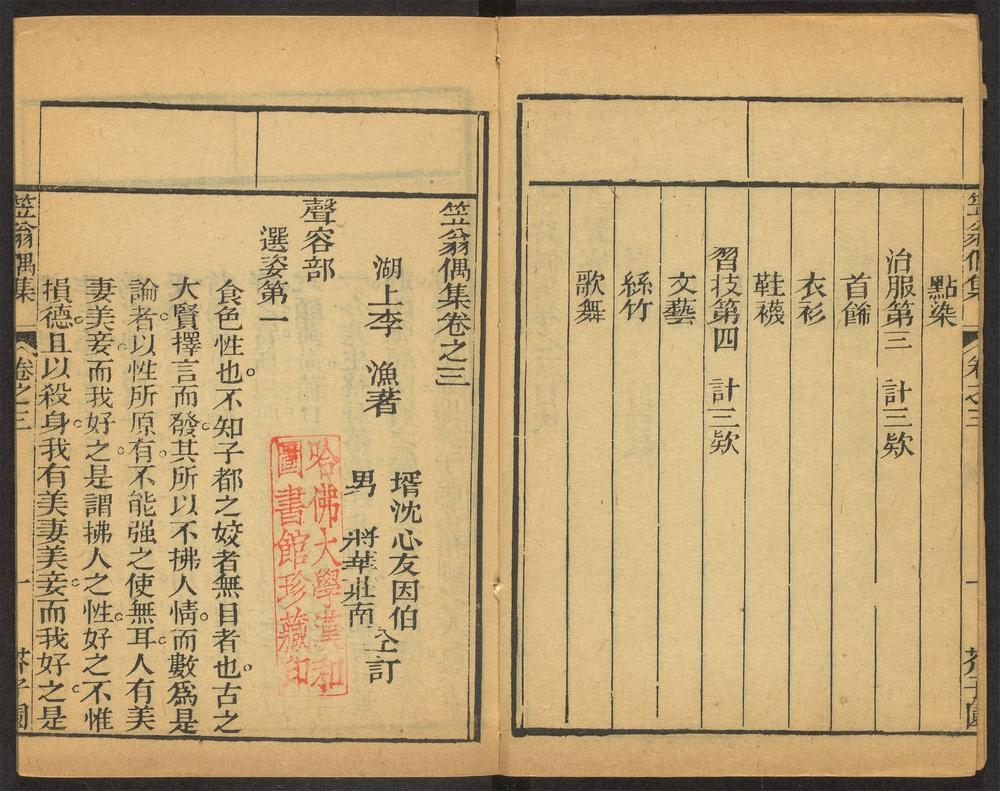 點染
治服第三　計三欵
首飾
衣衫
鞋襪
習技第四　計三欵
文藝
絲竹
歌舞
笠翁偶集卷之三
湖上李　漁著
壻沈心友因伯
男　將華莊南
仝訂
聲容部
選姿第一
食色性也。不知子都之姣者無目者也。古之
大賢擇言而發。其所以不拂人情。而數爲是
論者。以性所原有。不能强之使無耳。人有美
妻美妾。而我好之。是謂拂人之性。好之不惟
損德。且以殺身。我有美妻美妾。而我好之。是
笠翁偶集
卷之三
一
芥子園
哈佛大學漢和
圖書館珍藏印